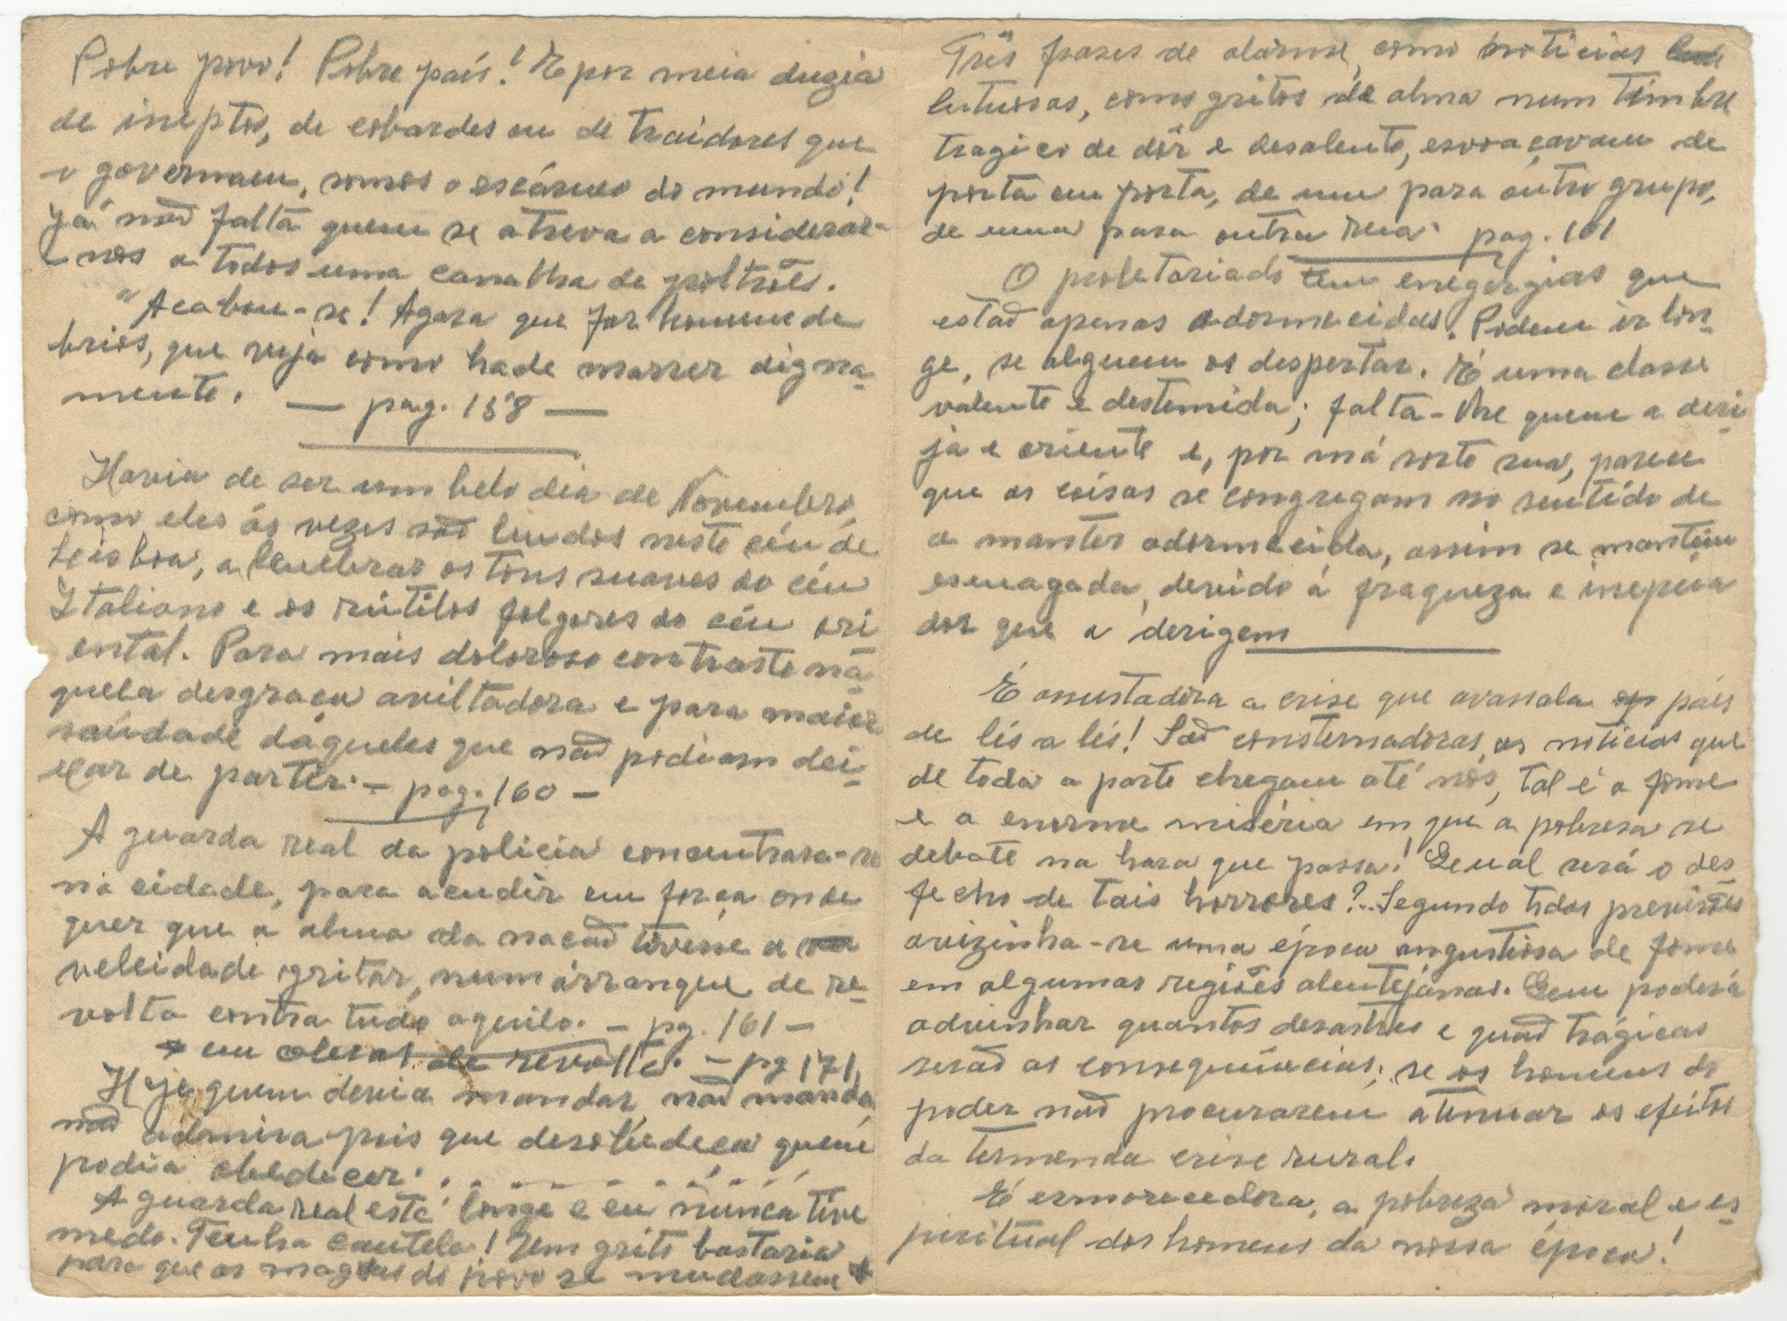 Pobre povo! Pobre país! E por meia duzia
de ineptos, de cobardes ou de traidores que
o governam, somos o escárneo do mundo!
Já não falta quem se atreva a considerar-
nos a todos uma canalha de poltrões.
"Acabou-se! Agora que for homem de
brios, que veja como hade morrer digna-
mente. — pag. 158 —
Havia de ser um belo dia de Novembro,
como eles ás vezes são lindos neste céu de
Leisboa, a lembrar os tons suaves do céu
Italiano e os rútilos folgores do céu ori
ental. Para mais doloroso contraste na-
quela desgraça aviltadora e para maior
saúdade dáqueles que não podiam dei-
xar de partir. — pag. 160 —
A guarda real da policia concentrara-se
na cidade, para acudir em força onde
quer que a alma da nação tivesse a
veleidade gritar, num arranque de re-
volta contra tudo aquilo. — pg. 161 —
em de revolta. — pg 171,
Hoje quem devia mandar, não manda
não admira pois que desobedeça quem
podia obedecer. . . . . . . . . . .
A guarda real está longe e eu nunca tive
medo. Tenha cautela! Um grito bastaria
para que as magoas do povo se mudassem
Três frases de alarme, como noticias
lutuosas, como gritos de alma num timbre
tragico de dôr e desalento, esvoaçavam de
porta em porta, de um para outro grupo,
de uma para outra rua. pag. 161
O proletariado tem enegergias que
estão apenas adormecidas. Podem ir lon-
ge, se alguem os despertar. É uma classe
valente e destemida; falta-lhe quem a deri
ja e oriente e, por má sorte sua, parece
que as coisas se congregam no sentido de
a manter adormecida, assim se mantem
esmagada, devido á fraqueza e inepcia
dos que a derigem
É assustadora a crise que avassala o país
de lés a lés! São consternadoras as noticias que
de toda a parte chegam até nós, tal é a fome
e a enorme miséria em que a pobresa se
debate na hora que passa! Qual será o des-
fecho de tais horrores?.. Segundo todas previsões
avizinha-se uma época angustiosa de fome
em algumas regiões alentejanas. Quem poderá
advinhar quantos desastres e quão trágicas
serão as consequências, se os homens do
poder não procurarem atenuar os efeitos
da tremenda crise rural.
É esmorecedora, a pobreza moral e es-
piritual dos homens da nossa época!